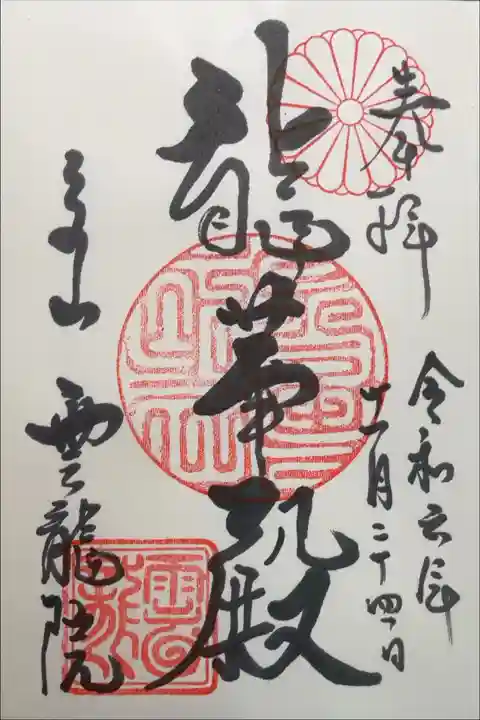 奉拝
令和元年
十一月二十四日
龍華殿
泉山
雲龍院